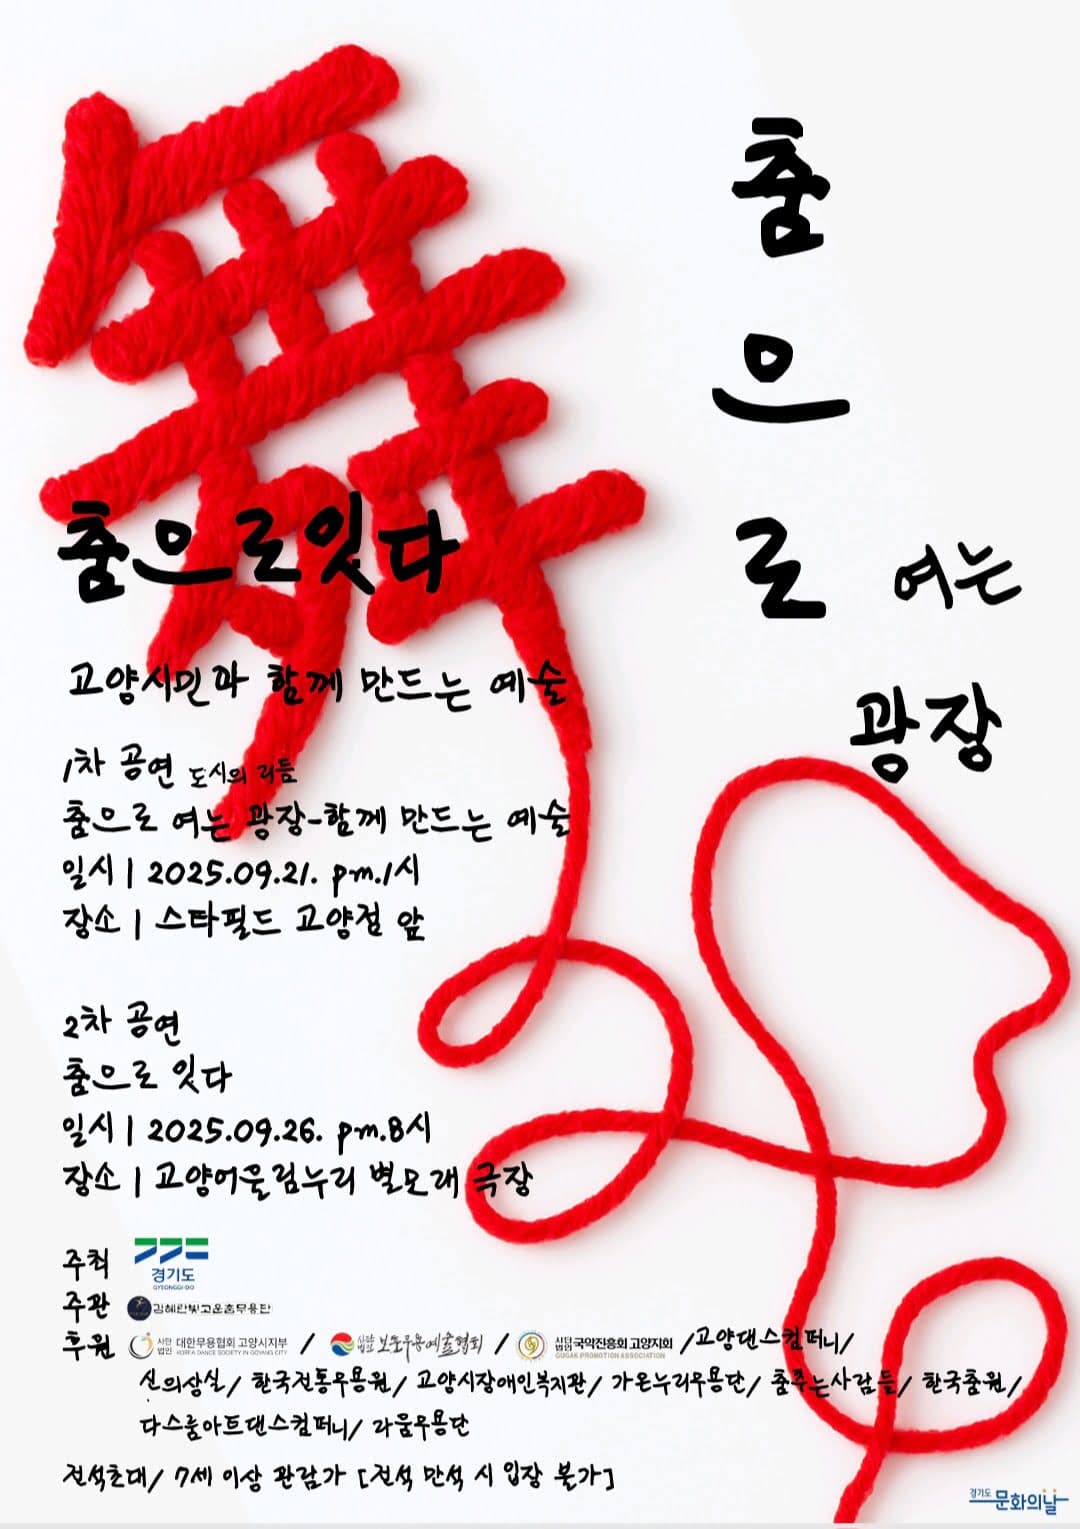 舞
춤으로 여는 광장
춤으로잇다
고양시민과 함께 만드는 예술
1차 공연 도시의 리듬
춤으로 여는 광장-함께 만드는 예술
일시 | 2025.09.21. pm.1시
장소 | 스타필드 고양점 앞
2차 공연
춤으로 잇다
일시 | 2025.09.26. pm.8시
장소 | 고양어울림누리 별모래 극장
주최 경기도 GYEONGGI-DO
주관 김혜란빛고운춤무용단
후원 사단법인 대한무용협회 고양시지부 KOREA DANCE SOCIETY IN GOYANG CITY / 사단법인 보훈무용예술협회 / 사단법인 국악진흥회 고양지회 GUGAK PROMOTION ASSOCIATION / 고양댄스컴퍼니/
신의상실/ 한국전통무용원/ 고양시장애인복지관/ 가온누리무용단/ 춤추는사람들/ 한국춤원/
다스름아트댄스컴퍼니/ 라움무용단
전석초대/ 7세 이상 관람가 [전석 만석 시 입장 불가]
경기도 문화의날